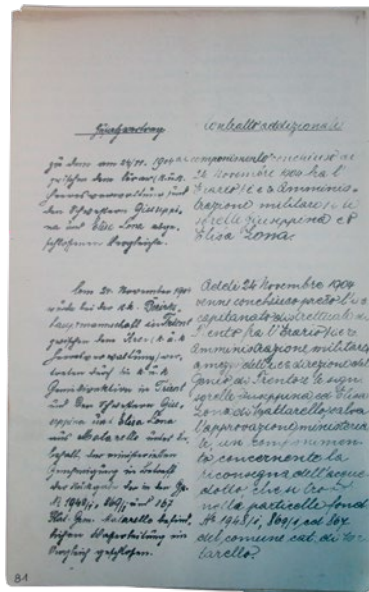 Zusatzvertrag
zu dem am 24/11. 1904
zwischen dem Ärar, k.u.k.
Heeresverwaltung und
den Schwestern Giuseppi-
na und Elisa Zona abge-
schlossenen Vergleiche.
Am 24. November 1904
wurde bei der k.k. Bezirks-
hauptmannschaft in Trient
zwischen dem Ärar, k.u.k.
Heeresverwaltung, ver-
treten durch die k.u.k.
Geniedirektion in Trient
und den Schwestern Gius-
eppina und Elisa Zona
aus Matarello unter Vor-
behalt der ministeriellen
Genehmigung in Betreff
der Rückgabe der in den Gp.
Nº 1948/1, 869/1 und 867
Kat. Gem. Matarello befind-
lichen Wasserleitung ein
Vergleich geschlossen.
Contratto addizionale
al componimento conchiuso ai
24 Novembre 1904 fra l'
Erario i. e r. Amminis-
trazione militare e le
sorelle Giuseppina ed
Elisa Zona.
Addi 24 Novembre 1904
venne conchiuso presso l' i. r.
capitanato distrettuale di
Trento fra l'Erario, i. e r.
amministrazione militare,
a mezzo dell' i. e r. direzione del
Genio di Trento e le sign.
sorelle Giuseppina ed Elisa
Zona di Mattarello, salva
l'approvazione ministeria-
le, un componimen-
to, concernente la
riconsegna dell'acque-
dotto, che si trova
nelle particelle fond.
Nº 1948/1, 869/1, ed 867
del comune cat. di Mat-
tarello.
81